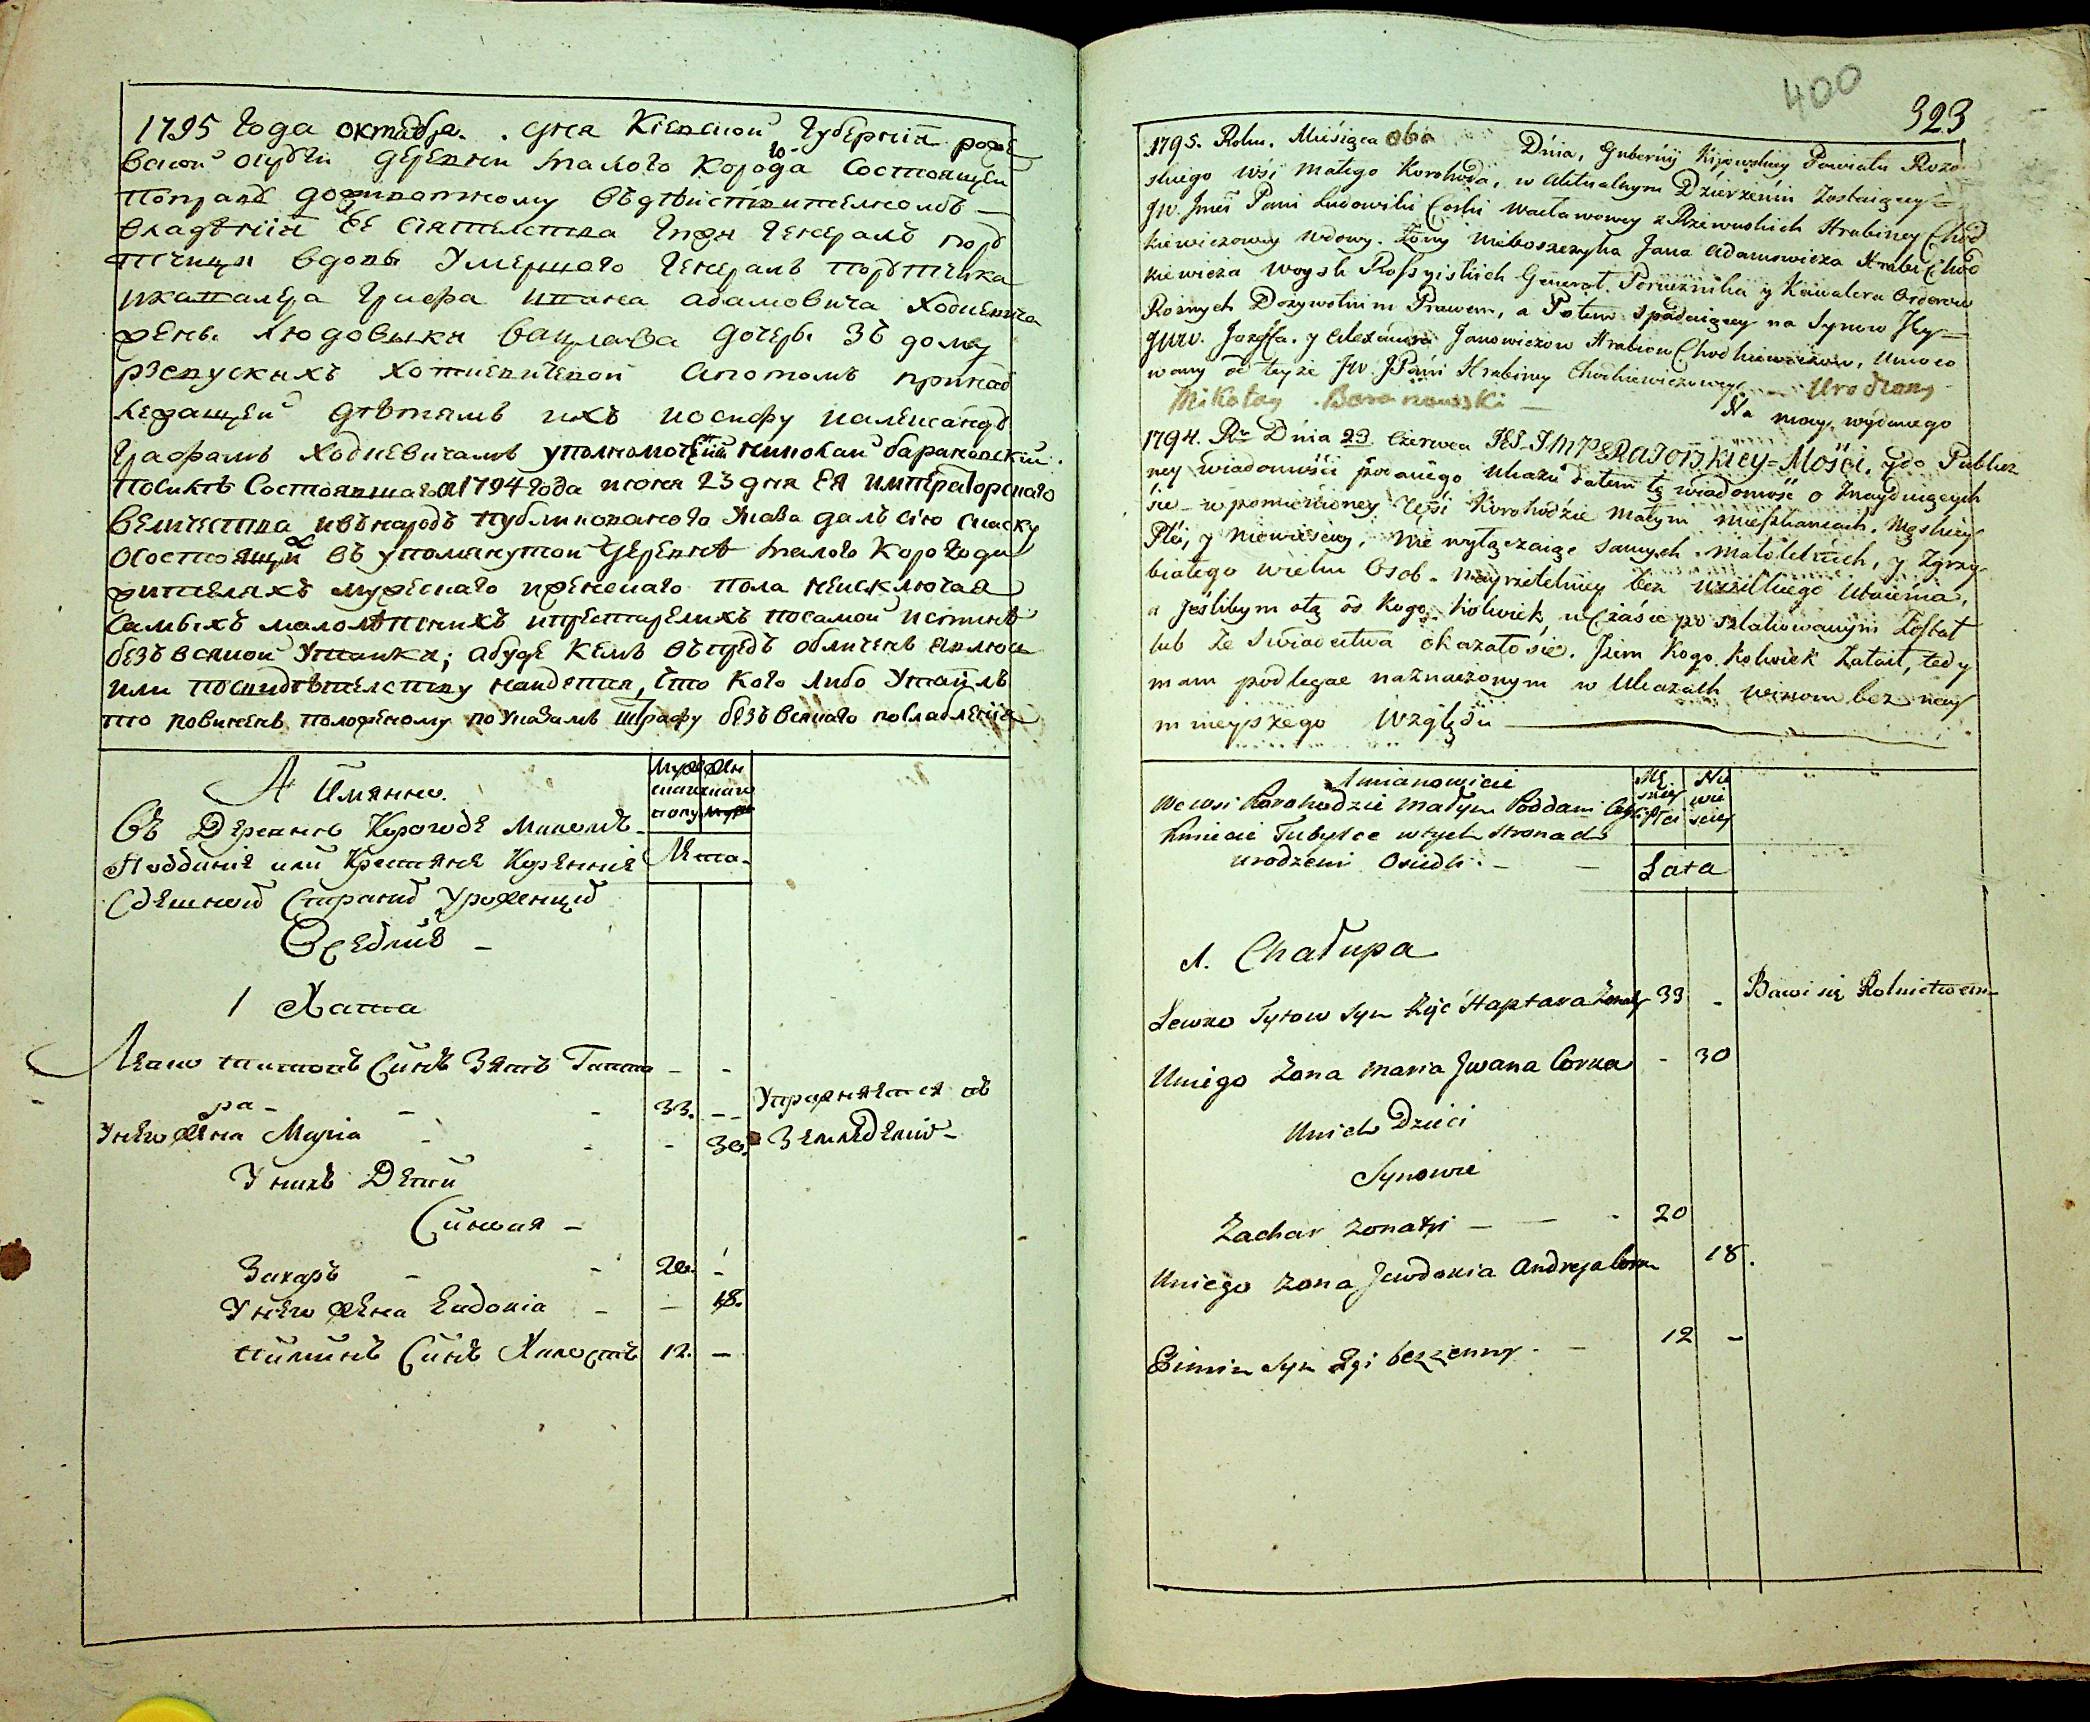 1795 года октября. дня Кіевской губерніи
деревни малого Корогода состоящей
владѣніи ЕЕ Сіятелства Генералъ пору
тчици вдовы Умершого Генералъ порутчика
икавалера Графа Ивана адамовича Ходкевича
жены Людовыки вацлава дочеры зъ дому
ржевускихъ Ходкевичевой апотомъ принад
лежащей дѣтямъ ихъ иосифу иалександ
Графамъ Ходкевичамъ уполномоченій николай барановскій
посилѣ Состоявшагося 1794 года июня 23 дня Ея императорскаго
величества ивънародъ публикованого Указа далъ сію скаску
осостоящихъ въ упомянутой деревнѣ малого Корогода
жителяхъ мужескаго иженскаго пола неисключая
самыхъ малолѣтнихъ ипрестарелихъ посамой истинѣ
безъ всякой Утайки; абуде кемъ въпредъ обличенъ явлюся
или посвидѣтелству найдется, что кого либо Утаилъ
то повиненъ положеному поУказамъ штрафу безъ всякаго послабленія
А имянно.
муже скаго полу
жен скаго
Въ Деревнѣ Корогодѣ Маломъ
Подданіе или Крестяне Коренніе
Лета
Сдешной Страни Уроженци
Оседліе
1 Хата
Левко титовъ Синъ Зять Гапта
ра 33.
Упражняется въ
Унего жена Марія 30. Земледеліи
У нихъ Дети
Синовя
Захаръ 20.
У него жена Евдокія 18.
пиминъ Синъ Холостъ 12.
400
323
1795. Roku. Miesiąca Dnia, Guberny Kijowskiey Powiatu Rado
skiego wsi małego Korohoda, w Aktualnym Dzierżeniu Zostaiącey
JW. Jmći Pani Ludowiki Corki Wacławowey z Rzewuskich Hrabiney Chod
kiewiczowey Wdowy. Żony Nieboszczyka Jana Adamowicza Hrabi Chod
kiewicza Woysk Rossyiskich Generał. Poruznika y Kawalera Orderow
Roznych Dozywotnim Prawem, a Potem spadaiącey na Synow Jey
JWW. Jozefa. y Alexandra Janowiczow Hrabiow Chodkiewiczow, Umoco
wany od teyże JW. JPani Hrabiney Chodkiewiczowey Urodzony
Mikołay Baranowski Na mocy wydanego
1794. Ru Dnia 23 Czerwca JEJ IMPERATORSKIEY Mości, y do Publicz
ney wiadomości podanego Ukazu datem tę wiadomość o Znayduiących
się w pomienioney Wsi Korohodzie małym mieszkancach, Męskiey
Płci, y Niewieściey, nie wyłączaiąc samych małoletnich, y Zgrzy
białego wieku Osob. nayrzetelniey bez wszelkiego utaienia,
a jeślibym otę od kogo kolwiek w Czasie poszlakowanym Został
lub Ze świadectwa okazałosię. Jzem kogo kolwiek Zataił, tedy
mam podlegac naznaczonym w Ukazach winom bez nay
mnieyszego Względu
Mianowicie
Mę skiey Płci
Nie wie sciey
We wsi Korohodzie małym Poddani Czyli
Kmiecie Tubylce wtych stronach
urodzeni Osiedli.
Lata
1. Chałupa
Lewko Tytow syn Zięć Haptara Zonaty 33 Bawi się Rolnictwem
Uniego Zona Maria Jwana Corka 30
Unich Dzieci
Synowie
Zachar zonaty 20
Uniego zona Jewdokia Andreja Corka 18.
Pimin syn bezzenny 12